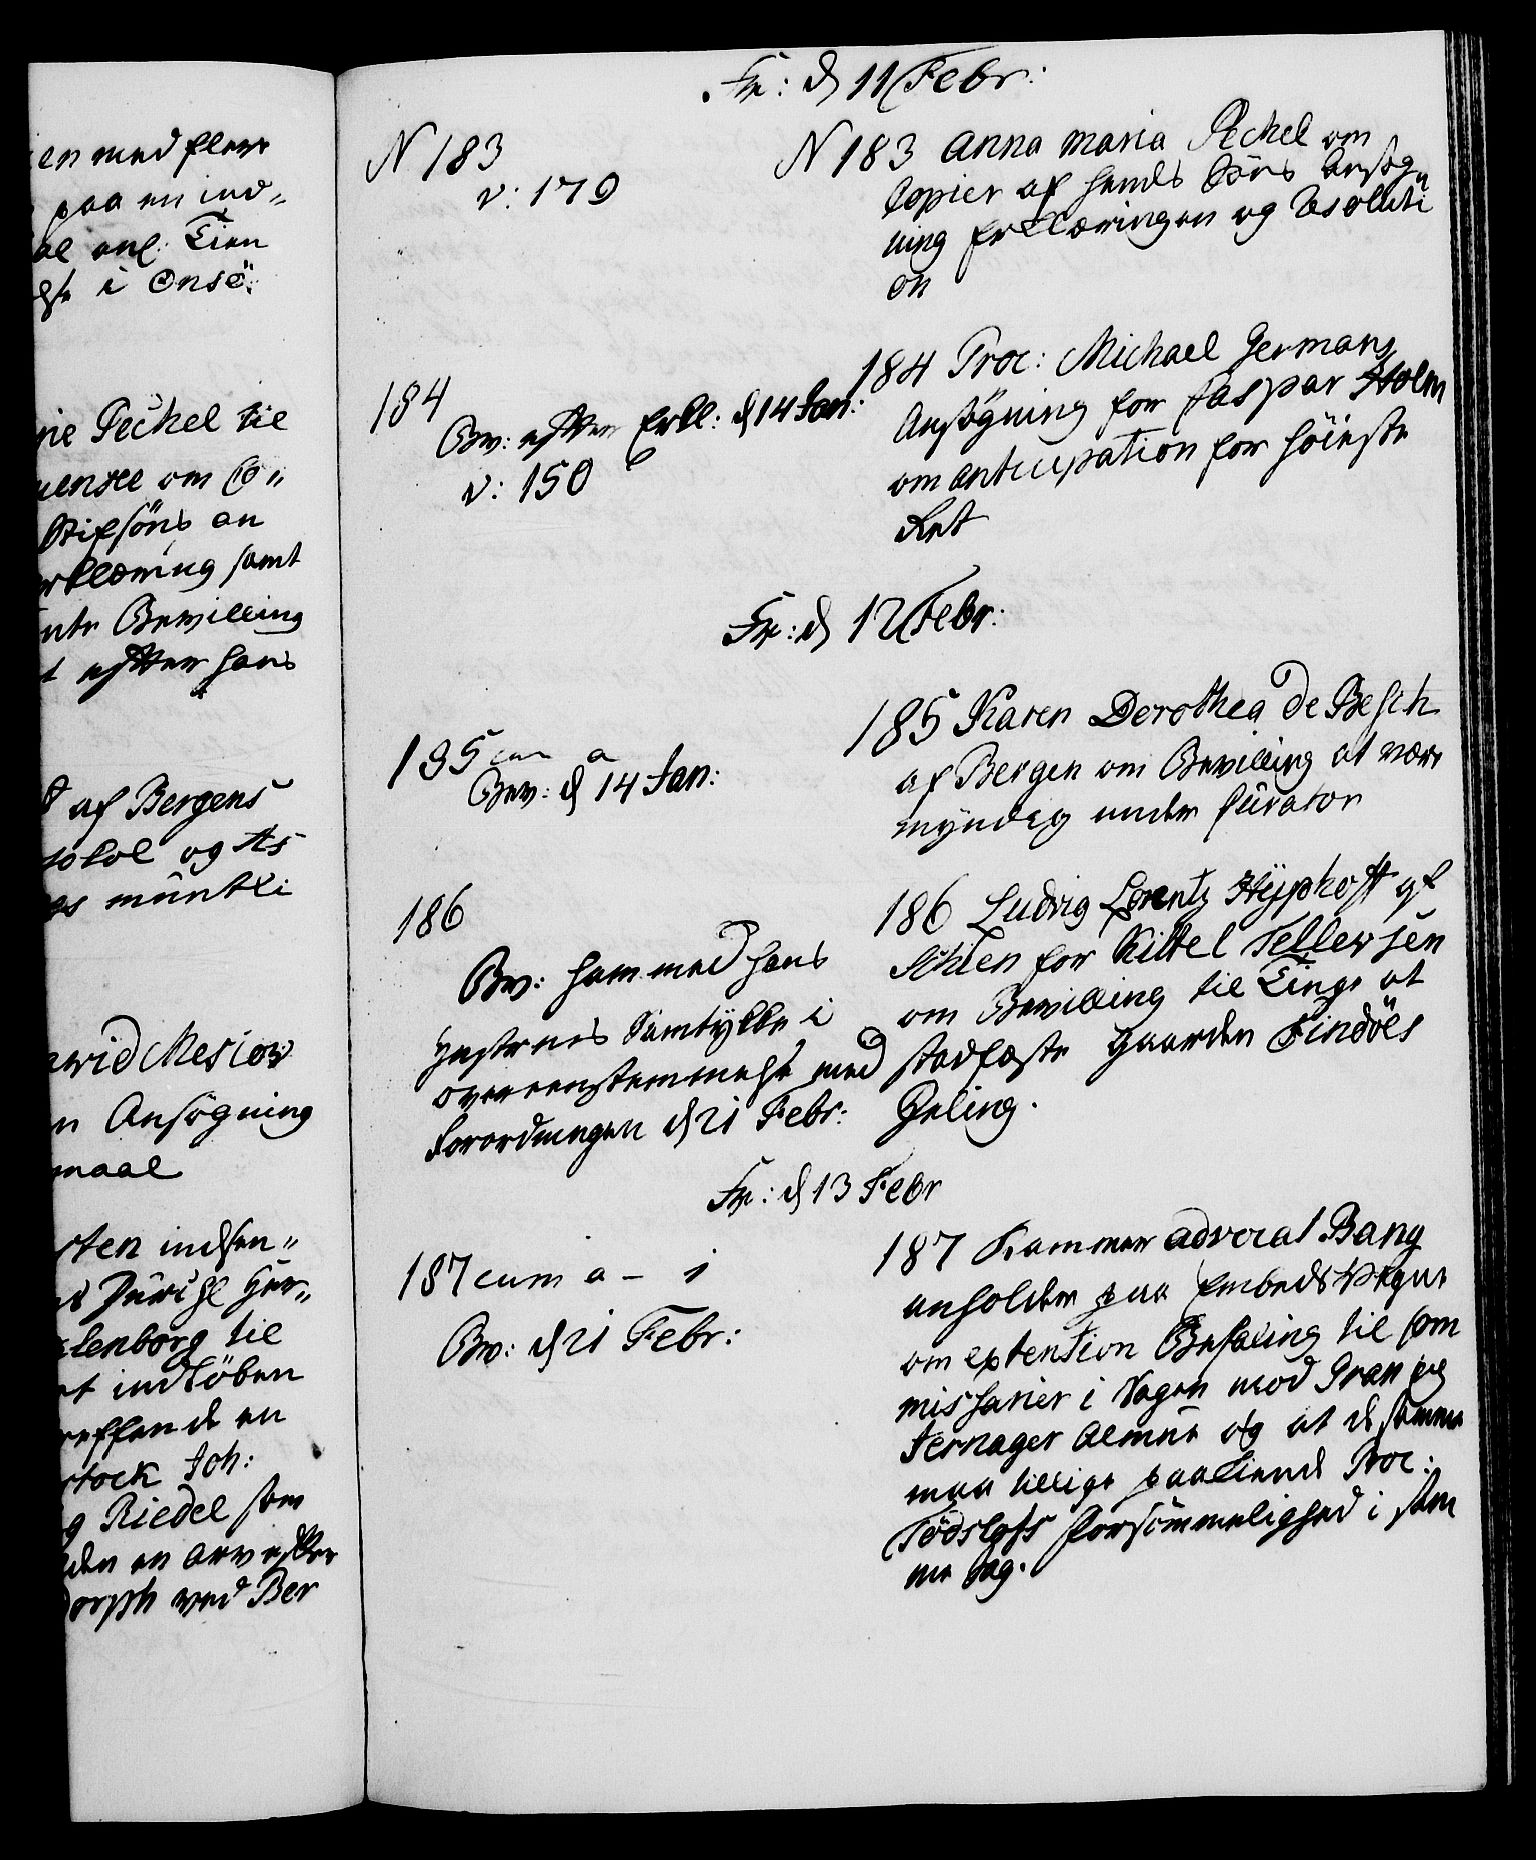 en med flere
paa en ind„
al anl. Tien
i Onsö.
ne Peckel til
om Co„
Stifsöns an
rklæring samt
Bevilling
efter hans
af Bergens
tocol og As
müntli
wid Mesiow
n Ansøgning
maal
rten indsen„
lenborg til
indløben
reffende en
stock Joh:
g Riedel som
den en Arv efter
dorph ved Ber
Fr: d 11 Febr:
N 183
v: 179
N 183 Anna Maria Peckel om
Copier af hendes Søns Ansøg„
ning Erklæringen og Resoluti
on
184
Bev: efter Erkl: d 14 Jan:
v: 150
184 Proc: Michael Hermans
Ansøgning for Caspar Holm
om anticipation for høieste
Ret
Fr: d 12 Febr:
185 cum a
Bev: d 14 Jan:
185 Karen Dorothea De Besch
af Bergen om Bevilling at være
myndig under Curator
186
Bev: ham med hans
Hustrues Samtykke i
overeenstemmelse med
Forordningen d 21 Febr:
186 Ludvig Lorentz Hyphoff af
Schien for Kittel Tellefsen
om Bevilling til Tinge at
stadfæste Gaarden Findöls
Deling.
Fr: d 13 Febr
187 cum a – i
Bev: d 21 Febr:
187 Kammer advocat Bang
anholder paa Embeds Vegne
om extention Befaling til Com
missarier i Sagen mod Gran og
Jernager Almue og at de samme
maa tillige paakiende Proc:
Tödslefs Forsømmelighed i sam
me Sag.